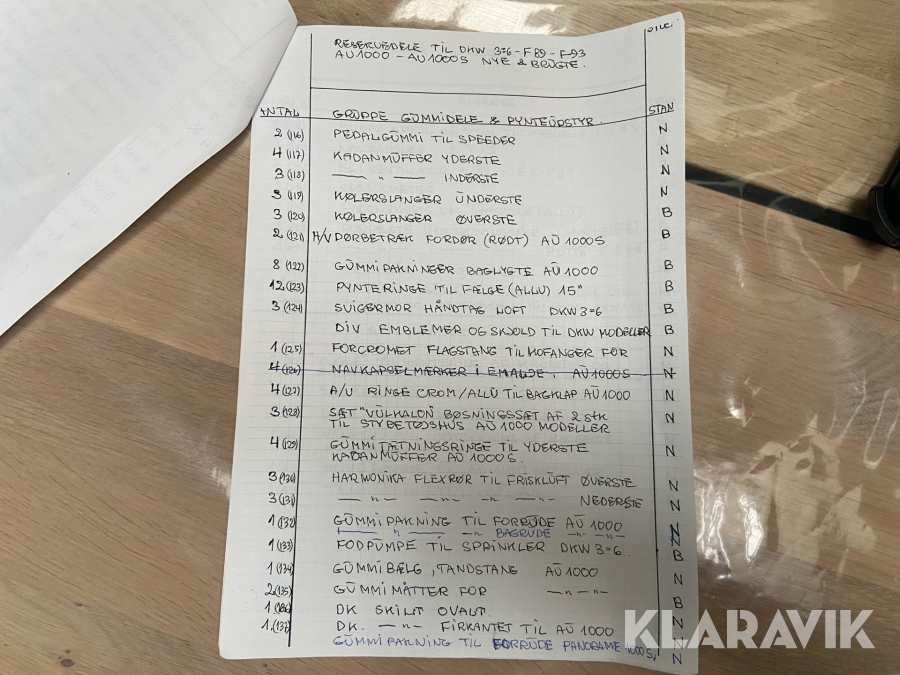 RESERVEDELE TIL DKW 3=6 - F89 - F-93
AU1000 - AU1000S NYE & BRUGTE.
ANTAL GRUPPE GUMMIDELE & PYNTEUDSTYR. STAN
2 (116) PEDALGUMMI TIL SPEEDER N
4 (117) KADANMUFFER YDERSTE N
3 (118) — " — INDERSTE N
3 (119) KØLERSLANGER UNDERSTE N
3 (120) KØLERSLANGER ØVERSTE B
2 (121) H/V DØRBETRÆK FORDØR (RØDT) AU 1000S B
8 (122) GUMMIPAKNINGER BAGLYGTE AU 1000 B
12 (123) PYNTERINGE TIL FÆLGE (ALLU) 15" B
3 (124) SVIGERMOR HÅNDTAG LOFT DKW 3=6 B
DIV EMBLEMER OG SKJOLD TIL DKW MODELLER B
1 (125) FORCROMET FLAGSTANG TIL KOFANGER FOR N
4 (126) NAVKAPSELMÆRKER I EMALDE. AU 1000S N
4 (127) A/U RINGE CROM/ALLU TIL BAGKLAP AU 1000 N
3 (128) SÆT "VULKALON" BØSNINGSSÆT AF 2 stk N
TIL STYRETØJSHUS AU 1000 MODELLER
4 (129) GUMMITÆTNINGSRINGE TIL YDERSTE N
KADANMUFFER AU 1000 S.
3 (130) HARMONIKA FLEXRØR TIL FRISKLUFT ØVERSTE N
3 (131) — " — — " — — " — — " — NEDERSTE N
1 (132) GUMMIPAKNING TIL FORRUDE AU 1000 N
— " — — " — BAGRUDE — " — — " — N
1 (133) FODPUMPE TIL SPRINKLER DKW 3=6. B
1 (134) GUMMIBÆLG, TANDSTANG AU 1000 N
2 (135) GUMMIMÅTTER FOR — " — B
1 (136) DK SKILT OVALT. N
1. (137) DK. — " — FIRKANTET TIL AU 1000 N
GUMMIPAKNING TIL FORRUDE PANORAME 1000S, N
KLARAVIK